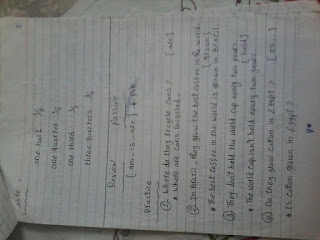 Note:-
one half 1/2
one quarter 1/4
one third 1/3
three quarters 3/4
Review Passive
[am - is - are] + P.P
Practice
① Where do they recycle cans? [are]
* Where are cans recycled
② In Brazil, they grow the best coffee in the world. [grown]
* The best coffee in the world is grown in Brazil
③ They don't hold the world cup every two years. [held]
* The world cup isn't held every two years.
④ Do they grow cotton in Egypt? [Is...]
* Is cotton grown in Egypt?